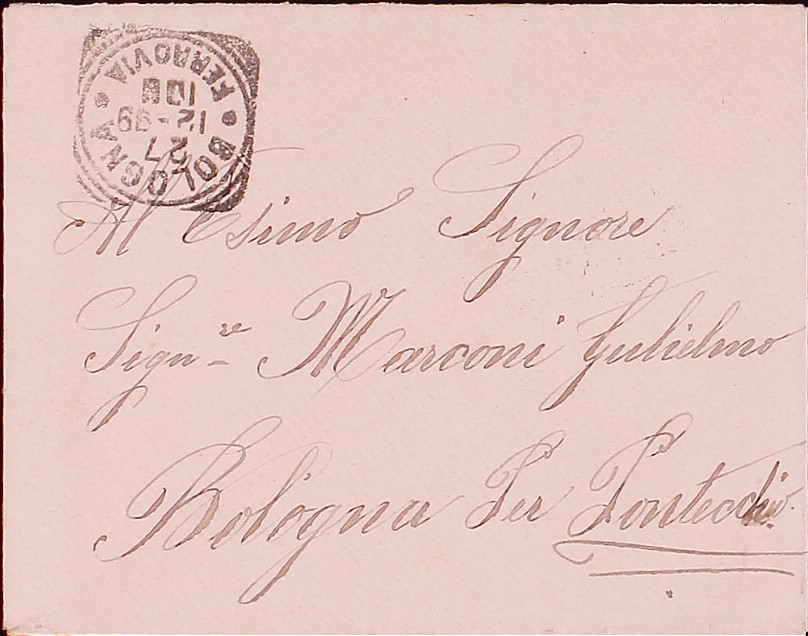 BOLOGNA
FERROVIA
27
12-99
10M
Al Esimo Signore
Sign.re Marconi Gulielmo
Bologna Per Pontecchio.